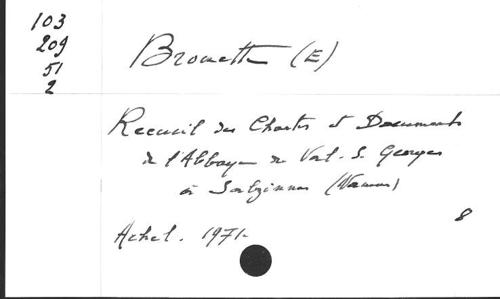 103
209
51
2
Brouette (E)
Recueil des Chartes et Documents
de l'Abbaye du Val-S. Georges
à Salzinnes (Namur)
8
Achat. 1971-